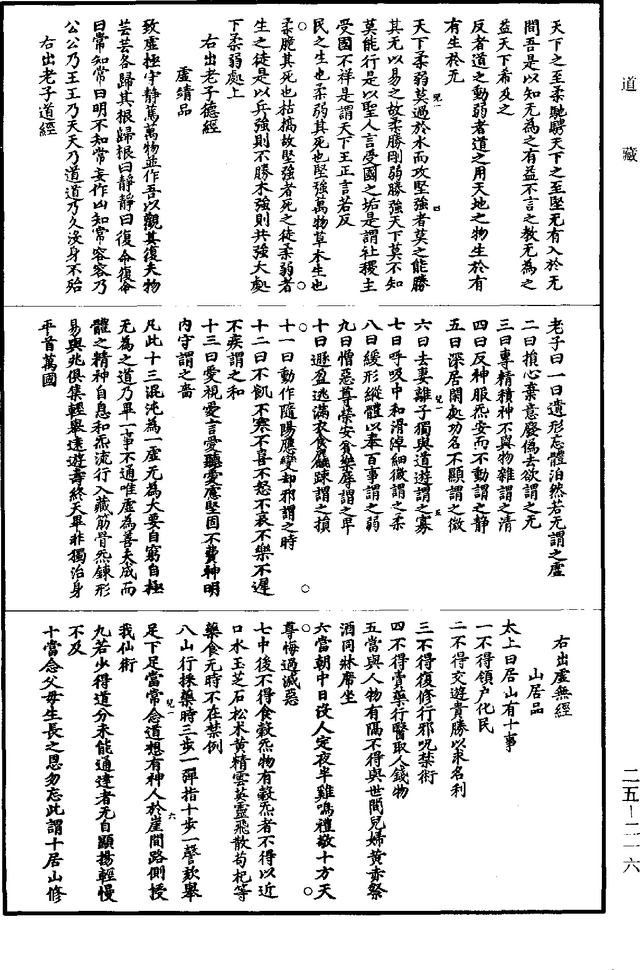 道藏
天下之至柔馳騁天下之至堅无有入於无
間吾是以知无為之有益不言之教无為之
益天下希及之
反者道之動弱者道之用天地之物生於有
有生於无
天下柔弱莫過於水而攻堅強者莫之能勝
其无以易之故柔勝剛弱勝強天下莫不知
莫能行是以聖人言受國之垢是謂社稷主
受國不祥是謂天下王正言若反
民之生也柔弱其死也堅強萬物草木生也
柔脆其死也枯槁故堅強者死之徒柔弱者
生之徒是以兵強則不勝木強則共強大處
下柔弱處上
右出老子德經
虛靖品
致虛極守静篤萬物並作吾以觀其復夫物
芸芸各歸其根歸根曰静静曰復命復命
曰常知常曰明不知常妄作凶知常容容乃
公公乃王王乃天天乃道道乃久沒身不殆
右出老子道經
老子曰一曰遺形忘體泊然若无謂之虛
二曰損心棄意廢偽去欲謂之无
三曰專精積神不與物雜謂之清
四曰反神服炁安而不動謂之静
五曰深居閑處功名不顯謂之微
六曰去妻離子獨與道遊謂之寡
七曰呼吸中和滑淖細微謂之柔
八曰緩形縱體以奉百事謂之弱
九曰憎惡尊榮安貧樂辱謂之卑
十曰遜盈逃滿衣食麤踈謂之損
十一曰動作隨陽應變却邪謂之時
十二曰不飢不寒不喜不怒不哀不樂不遲
不疾謂之和
十三曰愛視愛言愛聽愛慮堅固不費神明
內守謂之嗇
凡此十三混沌為一虛无為大要自窮自極
无為之道乃畢一事不通唯虛為善夫成而
體之精神自息和炁流行入藏筋骨炁鍊形
易與兆俱集輕舉遠遊壽終天畢非獨治身
平首萬國
右出虛無經
山居品
太上曰居山有十事
一不得領户化民
二不得交遊貴勝以求名利
三不得復修行邪呪禁術
四不得賣藥行醫取人錢物
五當與人物有隔不得與世間兒婦黄赤祭
酒同牀席坐
六當朝中日没人定夜半雞鳴禮敬十方天
尊悔過滅惡
七中後不得食穀炁物有穀炁者不得以近
口水玉芝石松术黄精雲英靈飛散苟杞等
藥食无時不在禁例
八山行採藥時三步一彈指十步一謦欬舉
足下足當常念道想有神人於崖間路側授
我仙術
九若少得道分未能通達者无自顯揚輕慢
不及
十當念父母生長之恩勿忘此謂十居山修
二五—二一六